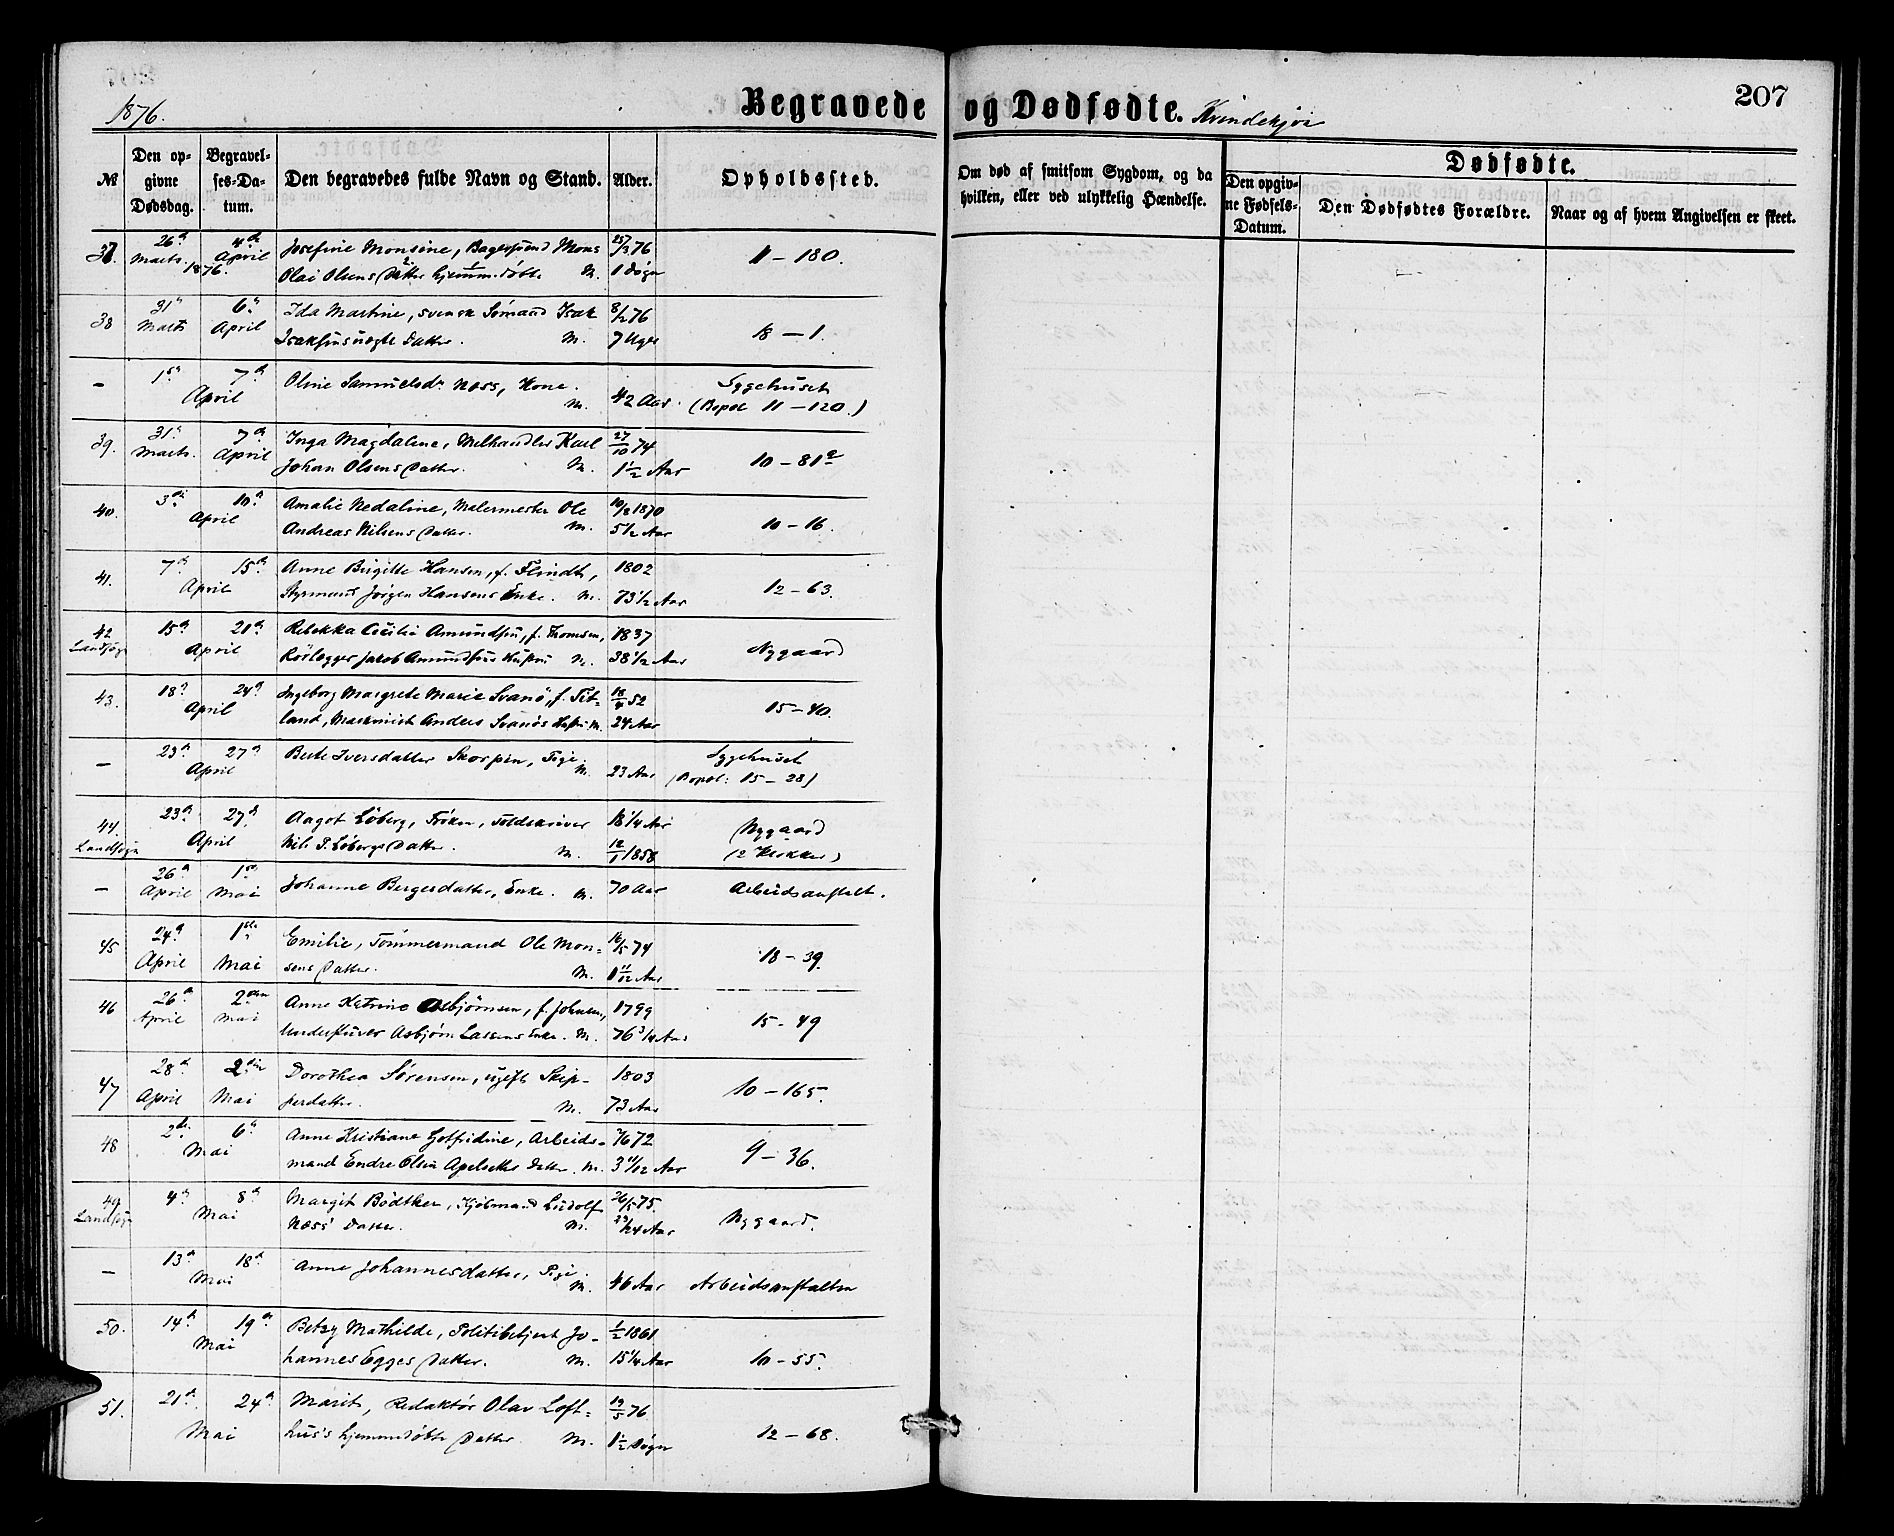 1876.
Begravede og Dødfødte. Kvindekjøn
207
No
Den opgivne Dødsdag.
Begravelses-Datum.
Den begravedes fulde Navn og Stand.
Alder.
Opholdssted.
Om død af smitsom Sygdom, og da hvilken, eller ved ulykkelig Hændelse.
Dødfødte.
Den opgivne Fødsels-Datum.
Den Dødfødtes Forældre.
Naar og af hvem Angivelsen er skeet.
37. 26de 4de Josefine Monsine, Bagersvend Mons 25/3 76
Marts 1876. April Olai Olsens Datter hjemmedøbt M. 1 Døgn 11 – 180.
38 31te 6te Ida Martine, svensk Sømand Isak 8/2 76
Marts April Isaksens uægte Datter. M. 7 Uger 18 – 1.
– 1ste 7de Oline Samuelsdr Næss, Kone. Sygehuset
April M. 42 Aar (Bopæl 11 – 120.)
39. 31te 7de Inga Magdaline, Melhandler Karl 27/10 74
Marts April Johan Olsens Datter. M. 1 1/2 Aar 10 – 81a
40. 3die 10de Amalie Nedaline, Malermester Ole 10/8 1870
April Andreas Nilsens Datter. M. 5 1/2 Aar 10 – 16.
41. 7de 15de Anne Birgitte Hansen, f. Flindt, 1802
April Styrmand Jørgen Hansens Enke. M. 73 1/2 Aar 12 – 63.
42 15de 20de Rebekka Cecilie Amundsen, f. Thomsen, 1837
Landsogn April Rørlægger Jacob Amundsens Hustru M. 38 1/2 Aar Nygaard
43. 18de 24de Ingeborg Margrete Marie Svanø, f. Tit- 18/4 52
April land, Maskinist Anders Svanøs Hustru M. 24 Aar 15 – 40.
– 23de 27de Berte Iversdatter Skorpen, Pige Sygehuset
April M. 23 Aar (Bopæl: 15 – 28)
44. 23de 27de Aagot Løberg, Frøken, Toldskriver 18 1/4 Aar Nygaard
Landsogn April Nils P. Løbergs Datter. M. 12/1 1858 (2 Klokker)
– 26de 1ste
April Mai Johanne Bergersdatter, Enke. M. 70 Aar Arbeidsanstalt.
45 24de 1ste Emilie, Tømmermand Ole Mon- 16/5 74
April Mai sens Datter. M. 1 11/12 Aar 18 – 39.
46 26de 2den Anne Katrine Asbjørnsen, f. Johnsen, 1799
April Mai Asbjørn Larsens Enke. M. 76 3/4 Aar 15 – 49
47 28de 2den Dorothea Sørensen, ugift Skip- 1803
April Mai perdatter. M. 73 Aar 10 – 165.
48 2den 6te Anne Kristiane Gotfridine, Arbeids- 7/6 72
Mai mand Endre Olsen Apelsæters Datter. M. 3 11/12 Aar 9 – 36.
49 4de 8de Margit Bødtker, Kjøbmand Ludolf 26/5 75.
Landsogn Mai Næss' Datter. M. 23/24 Aar Nygaard.
– 13de 18de Anne Johannesdatter, Pige
Mai M. 46 Aar Arbeidsanstalten
50. 14de 19de Betzy Mathilde, Politibetjent Jo- 1/2 1861
Mai hannes Egges Datter. M. 15 1/4 Aar 10 – 55.
51. 21de 24de Marit, Redaktør Olav Loft- 19/5 76
Mai hus's hjemmedøbte Datter M. 1 1/2 Døgn 12 – 68.